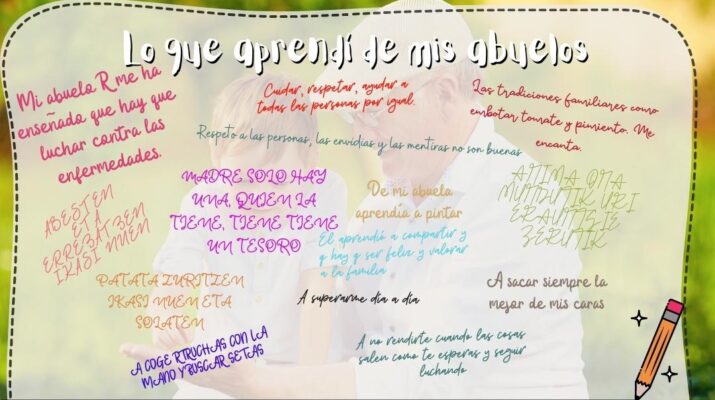 Lo que aprendí de mis abuelos
Mi abuelo R me ha
enseñado que hay que
luchar contra las
enfermedades.
Cuidar, respetar, ayudar a
todas las personas por igual.
Las tradiciones familiares como
embotar tomate y pimiento. Me
encanta.
Respeto a las personas, las envidias y las mentiras no son buenas
MADRE SOLO HAY
UNA, QUIEN LA
TIENE, TIENE TIENE
UN TESORO
De mi abuela
aprendía a pintar
AMMA OTA
MUNDUTIK URI
ERAUTSIE
ZERUTIK
ABESTEN
ETA
ERREZATZEN
IKASI NUEN
El aprendió a compartir y
y hay q ser feliz y valorar
a la familia
PATATA ZURITZEN
IKASI NUEN ETA
SOLATEN
A superarme día a día
A sacar siempre la
mejor de mis caras
A COGE RTRUCHAS CON LA
MANO Y BUSCAR SETAS
A no rendirte cuando las cosas
salen como te esperas y seguir
luchando